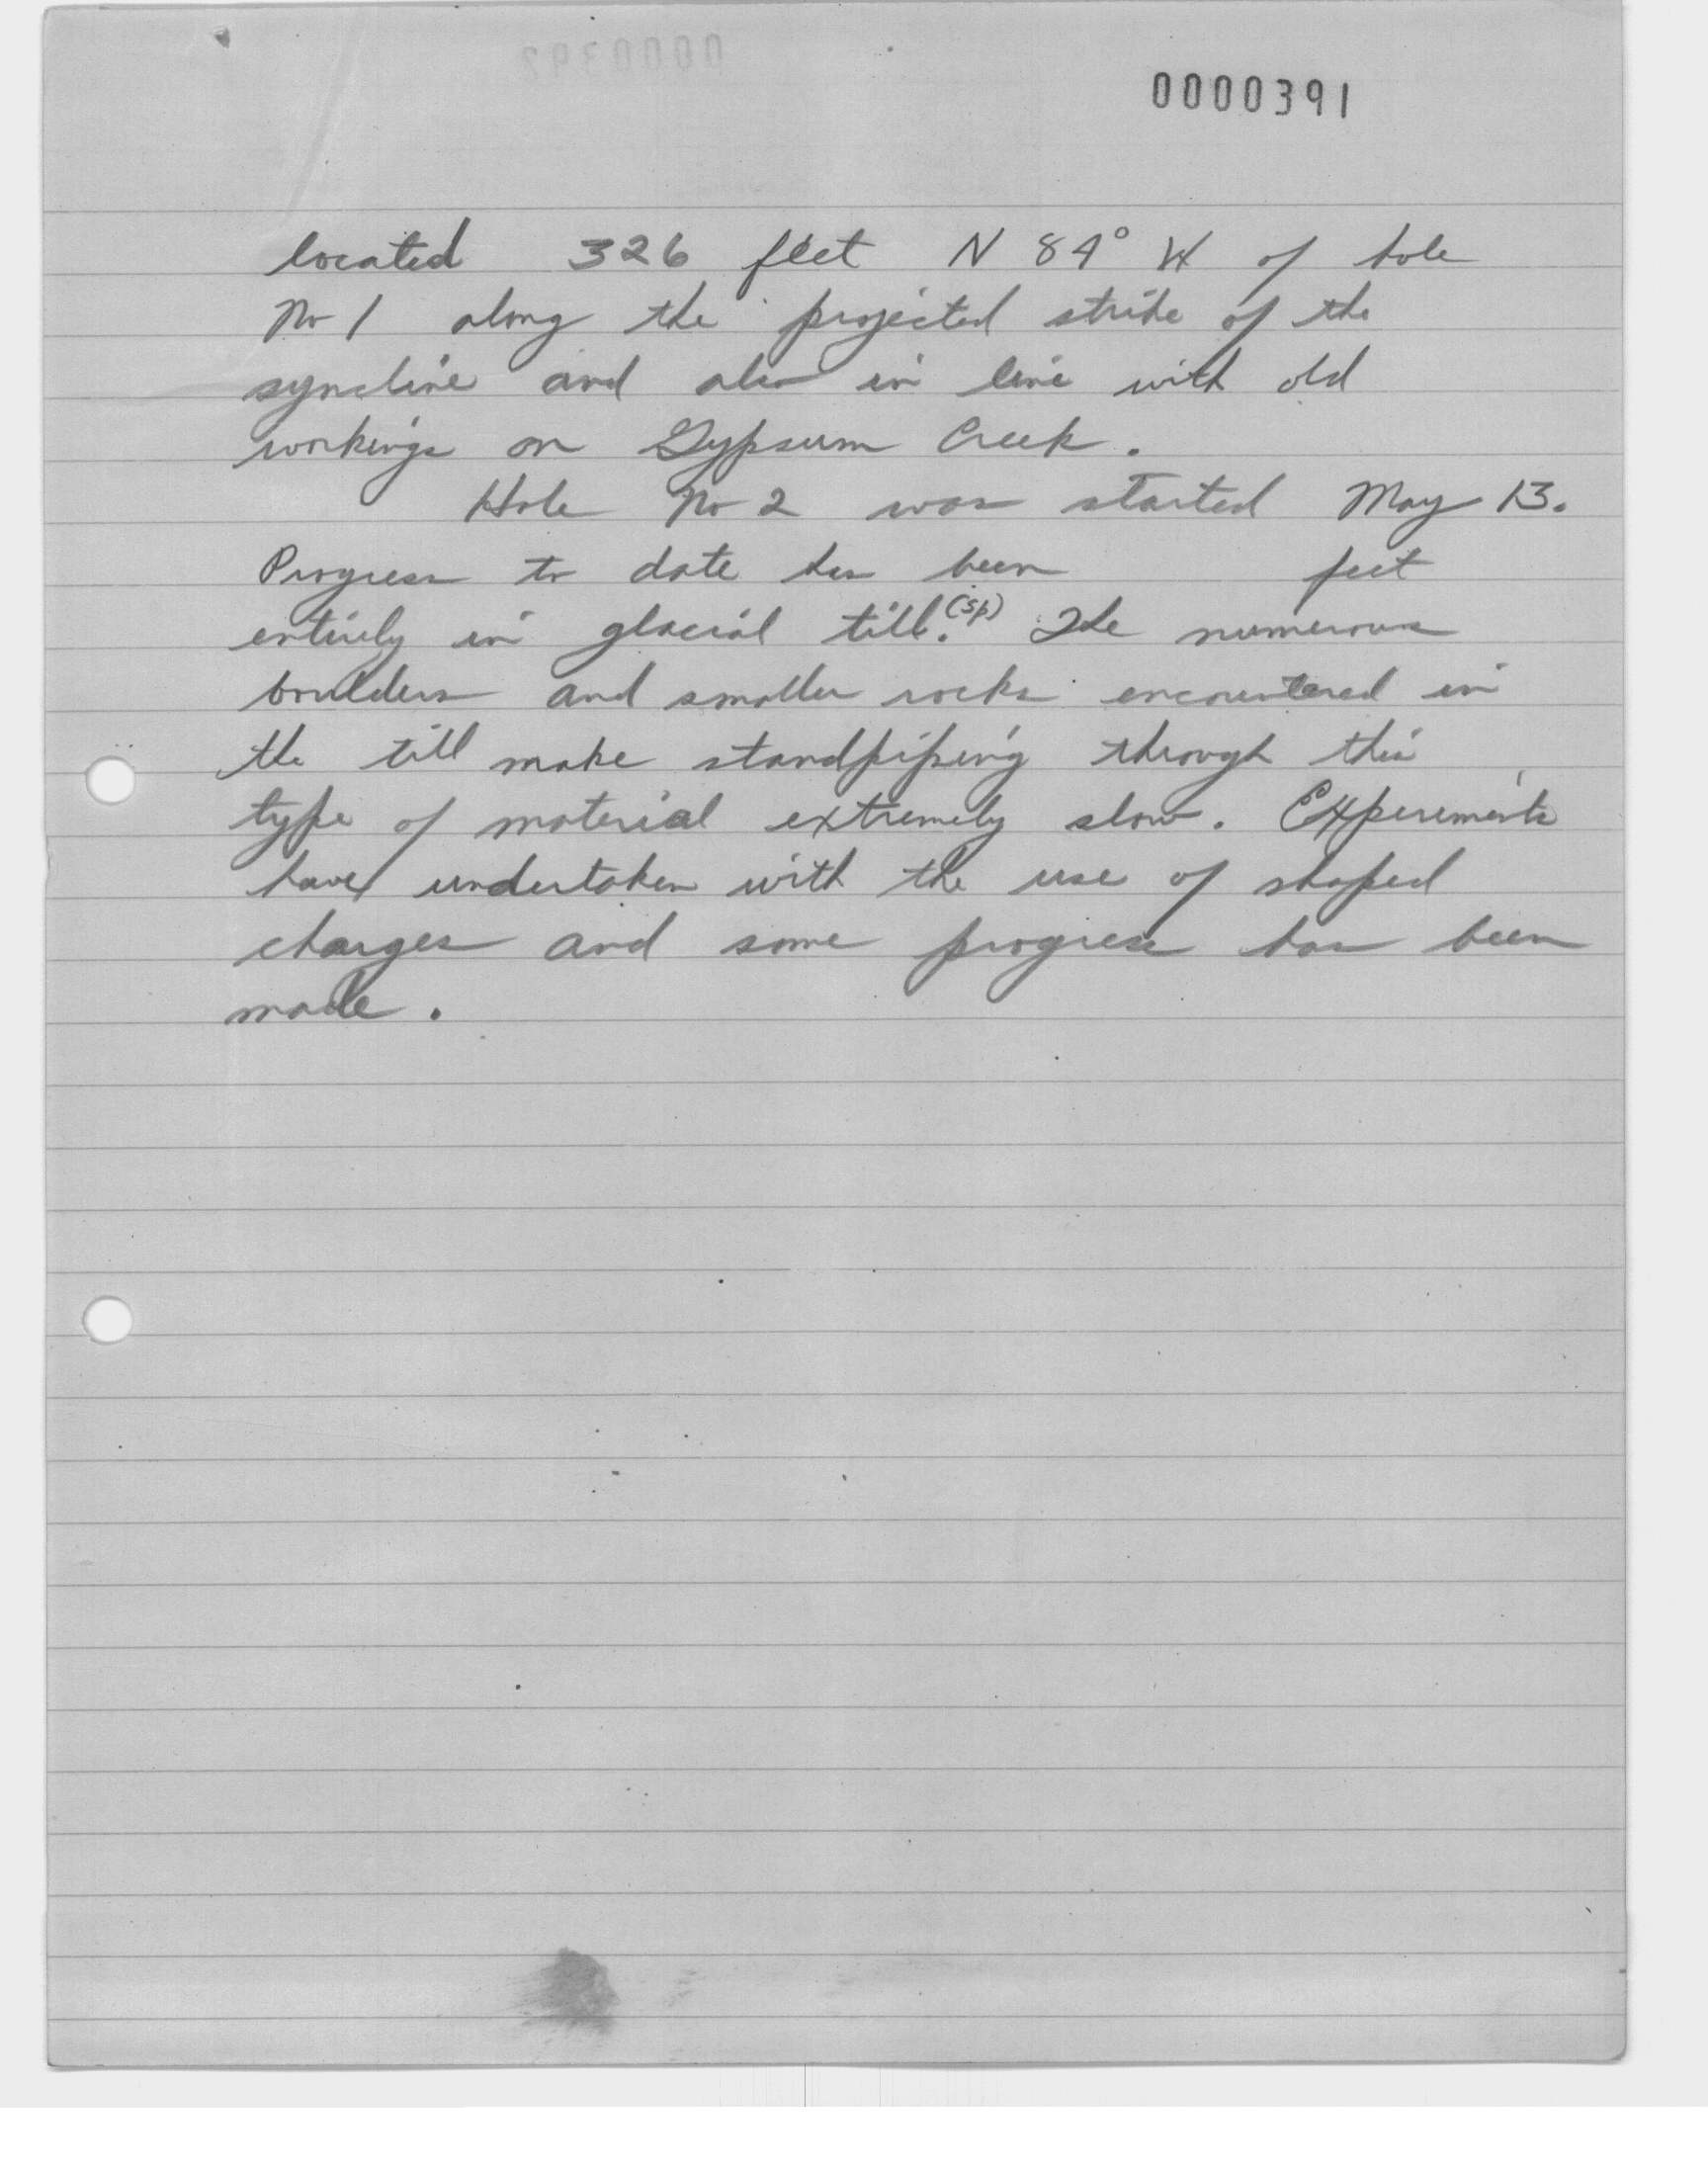 0000391
located 326 feet N 84° W of hole
No 1 along the projected strike of the
syncline and also in line with old
workings on Gypsum Creek.
Hole No 2 was started May 13.
Progress to date has been feet
entirely in glacial till.(sp) The numerous
boulders and smaller rocks encountered in
the till make standpiping through this
type of material extremely slow. Experiments
have undertaken with the use of shaped
charges and some progress has been
made.